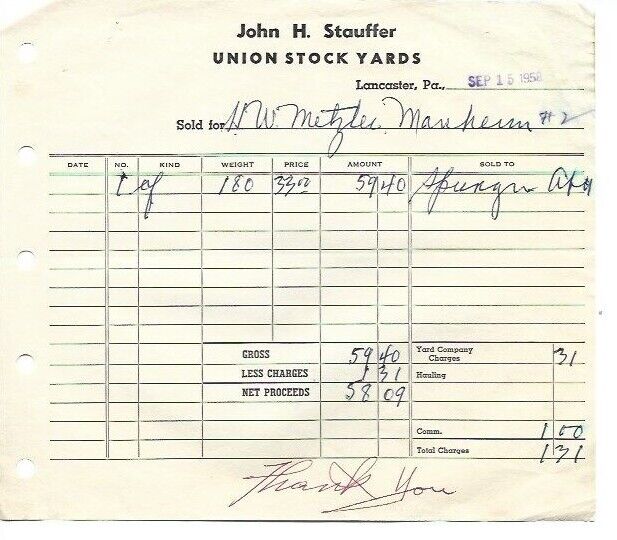 John H. Stauffer
UNION STOCK YARDS
Lancaster, Pa., SEP 15 1958
Sold for H. W. Metzler Manheim #2
DATE NO. KIND WEIGHT PRICE AMOUNT SOLD TO
1 Clf 180 33.00 59 40
GROSS 59 40 Yard Company Charges 31
LESS CHARGES 1 31 Hauling
NET PROCEEDS 58 09
Comm. 1 00
Total Charges 1 31
Thank You